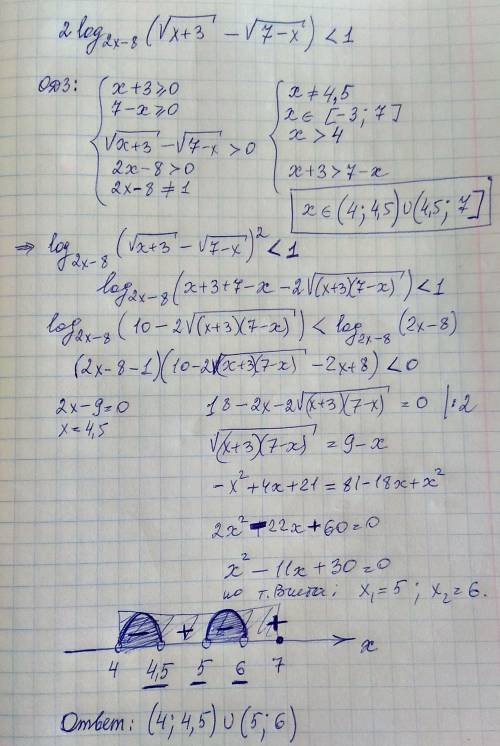 2 log_{2x-8} (√(x+3) - √(7-x)) < 1
ОДЗ: { x+3 ⩾ 0
7-x ⩾ 0
√(x+3) - √(7-x) > 0
2x-8 > 0
2x-8 ≠ 1
{ x ≠ 4,5
x ∈ [-3; 7]
x > 4
x+3 > 7-x
x ∈ (4; 4,5) ∪ (4,5; 7]
⇒ log_{2x-8} (√(x+3) - √(7-x))² < 1
log_{2x-8} (x+3+7-x-2√((x+3)(7-x))) < 1
log_{2x-8} (10-2√((x+3)(7-x))) < log_{2x-8} (2x-8)
(2x-8-1)(10-2√((x+3)(7-x)) -2x+8) < 0
2x-9=0
x=4,5
18-2x-2√((x+3)(7-x)) = 0 |:2
√((x+3)(7-x)) = 9-x
-x²+4x+21 = 81-18x+x²
2x²-22x+60=0
x²-11x+30=0
по т. Виета: x₁=5; x₂=6.
- + - +
4 4,5 5 6 7 x
Ответ: (4; 4,5) ∪ (5; 6)